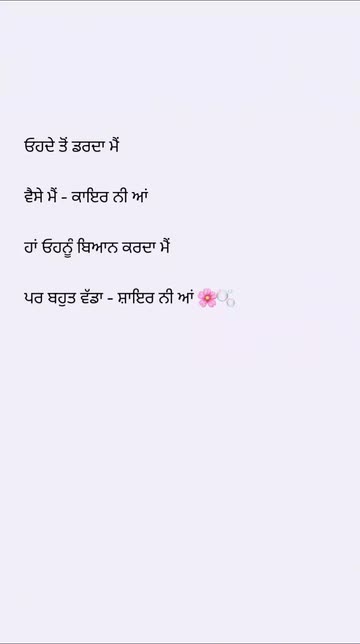 ਓਹਦੇ ਤੋਂ ਡਰਦਾ ਮੈਂ
ਵੈਸੇ ਮੈਂ - ਕਾਇਰ ਨੀ ਆਂ
ਹਾਂ ਓਹਨੂੰ ਬਿਆਨ ਕਰਦਾ ਮੈਂ
ਪਰ ਬਹੁਤ ਵੱਡਾ - ਸ਼ਾਇਰ ਨੀ ਆਂ 🌸🫧